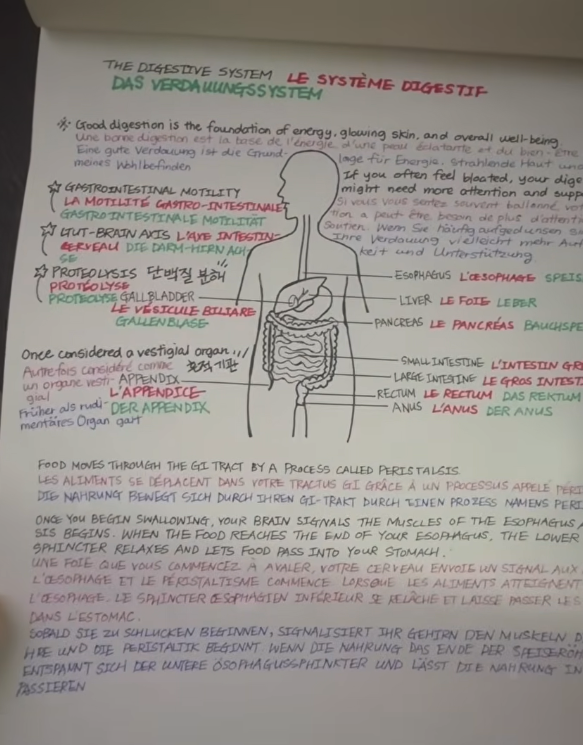 THE DIGESTIVE SYSTEM LE SYSTÈME DIGESTIF
DAS VERDAUUNGSSYSTEM
Good digestion is the foundation of energy, glowing skin, and overall well-being
Une bonne digestion est la base de l'énergie, d'une peau éclatante et du bien-être
Eine gute Verdauung ist die Grund-
lage für Energie, Strahlende Haut und
meines Wohlbefinden
If you often feel bloated, your dige
might need more attention and supp
Si vous vous sentez souvent ballonné, vot
tion a peut-être besoin de plus d'attent
Soutien. Wenn Sie häufig aufgedunsen si
Ihre Verdauung vielleicht mehr Auf
keit und Unterstützung
GASTROINTESTINAL MOTILITY
LA MOTILITÉ GASTRO-INTESTINALE
GASTROINTESTINALE MOTILITÄT
GUT-BRAIN AXIS L'AXE INTESTIN-
CERVEAU DIE DARM-HIRN ACH-
SE
PROTEOLYSIS 단백질 분해
PROTÉOLYSE
PROTEOLYSE GALLBLADDER
LE VÉSICULE BILIARE
GALLENBLASE
ESOPHAGUS L'ŒSOPHAGE SPEIS
LIVER LE FOIE LEBER
PANCREAS LE PANCRÉAS BAUCHSPE
SMALL INTESTINE L'INTESTIN GR
LARGE INTESTINE LE GROS INTEST
RECTUM LE RECTUM DAS REKTUM
ANUS L'ANUS DER ANUS
Once considered a vestigial organ
Autrefois considéré comme
un organe vesti- APPENDIX
gial L'APPENDICE
Früher als rudi- DER APPENDIX
mentäres Organ gart
FOOD MOVES THROUGH THE GI TRACT BY A PROCESS CALLED PERISTALSIS
LES ALIMENTS SE DÉPLACENT DANS VOTRE TRACTUS GI GRÂCE À UN PROCESSUS APPELÉ PÉRI
DIE NAHRUNG BEWEGT SICH DURCH IHREN GI-TRAKT DURCH EINEN PROZESS NAMENS PERI
ONCE YOU BEGIN SWALLOWING, YOUR BRAIN SIGNALS THE MUSCLES OF THE ESOPHAGUS A
SIS BEGINS. WHEN THE FOOD REACHES THE END OF YOUR ESOPHAGUS, THE LOWER
SPHINCTER RELAXES AND LETS FOOD PASS INTO YOUR STOMACH.
UNE FOIE QUE VOUS COMMENCEZ À AVALER, VOTRE CERVEAU ENVOIE UN SIGNAL AUX
L'ŒSOPHAGE ET LE PÉRISTALTISME COMMENCE LORSQUE LES ALIMENTS ATTEIGNENT
L'ŒSOPHAGE. LE SPHINCTER ŒSOPHAGIEN INFÉRIEUR SE RELÂCHE ET LAISSE PASSER LES
DANS L'ESTOMAC.
SOBALD SIE ZU SCHLUCKEN BEGINNEN, SIGNALISIERT IHR GEHIRN DEN MUSKELN D
HRE UND DIE PERISTALTIK BEGINNT WENN DIE NAHRUNG DAS ENDE DER SPEISERÖH
ENTSPANNT SICH DER UNTERE ÖSOPHAGUSSPHINKTER UND LÄSST DIE NAHRUNG IN
PASSIEREN